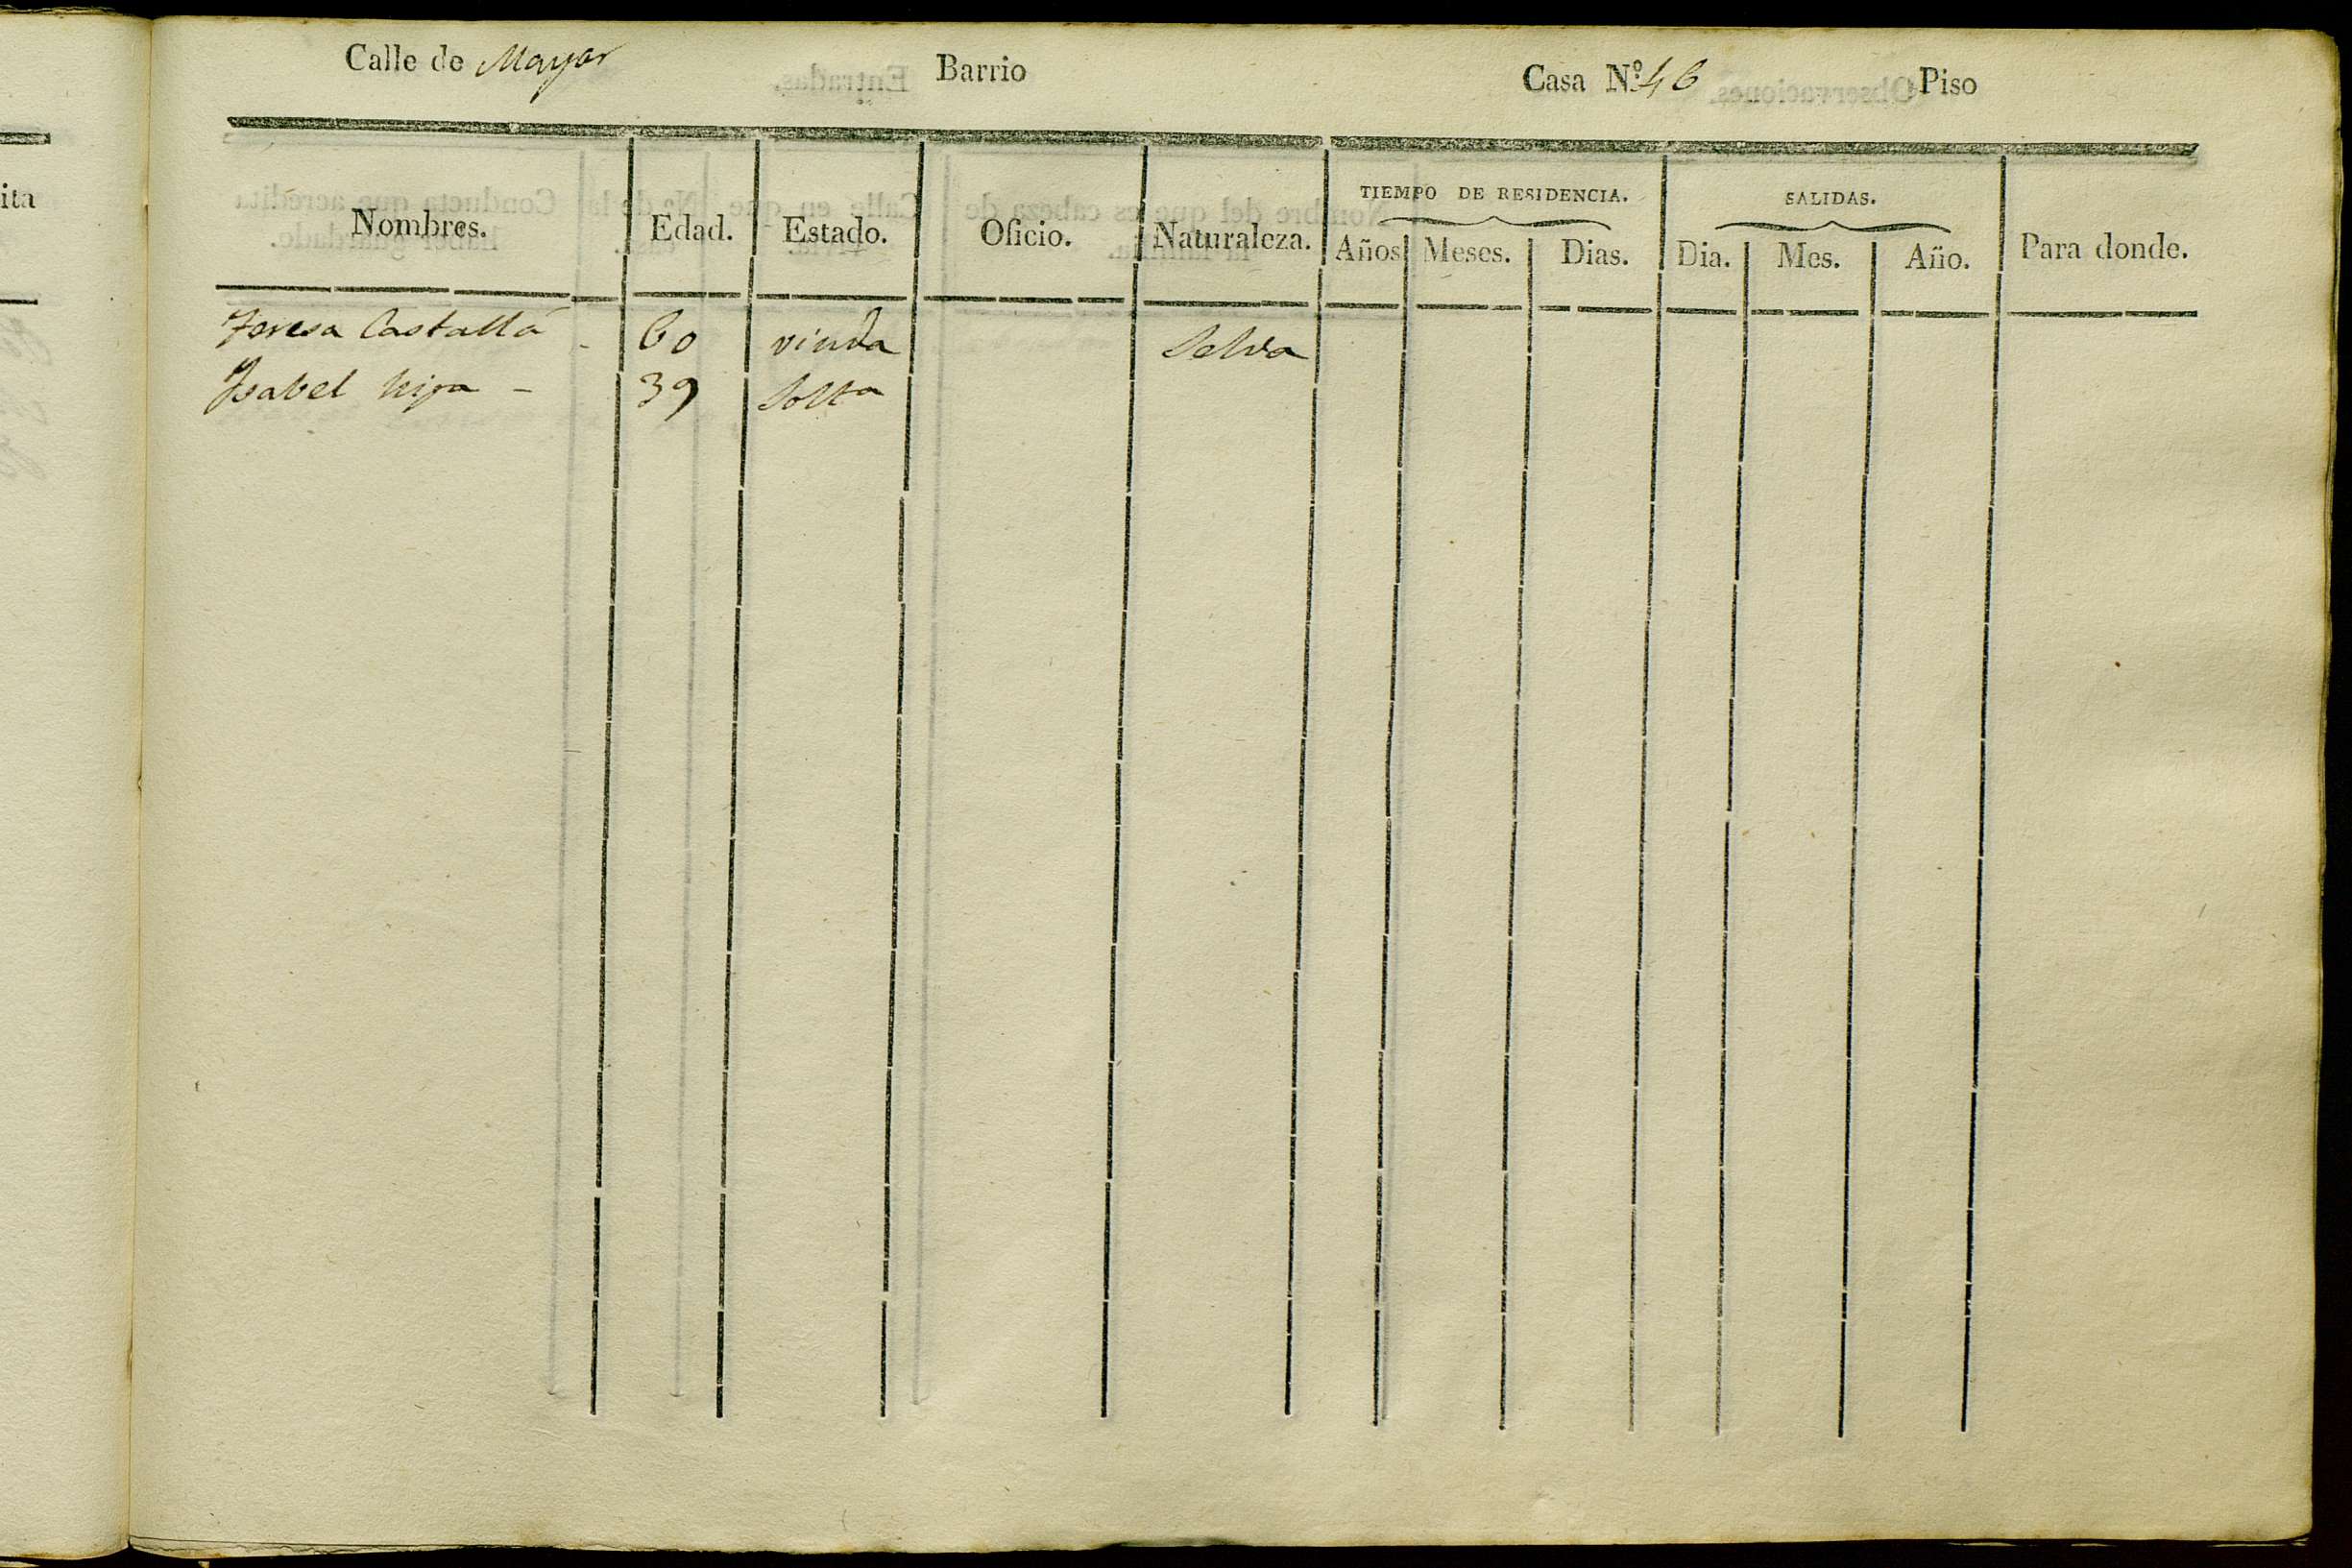 Calle de Mayor Barrio Casa N.º 46 Piso
TIEMPO DE RESIDENCIA. SALIDAS.
Nombres. Edad. Estado. Oficio. Naturaleza. Años Meses. Dias. Dia. Mes. Año. Para donde.
Teresa Castallá - 60 viuda Selva
Isabel hija - 39 Solta
ita